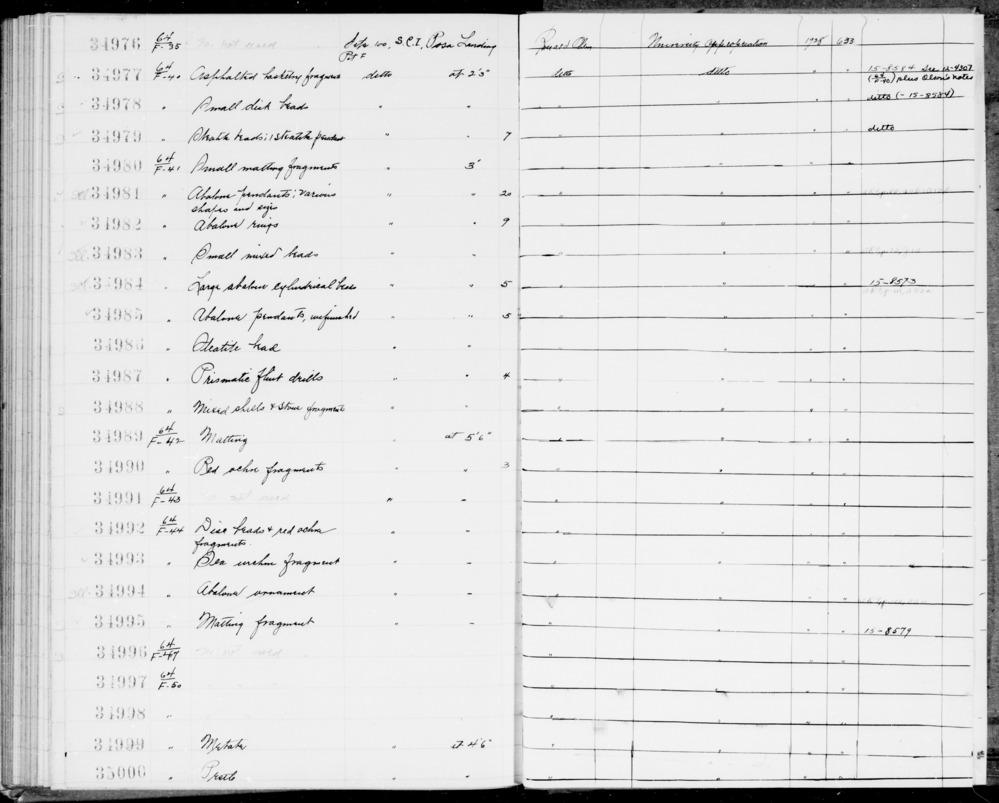 34976 64/F-35 Site 100, S.C.I, Posa Landing University Appropriation 1928 633
Pit F
34977 64/F-40 Asphalted basketry fragments ditto at 2'3" ditto ditto " " 15-8584 See 12-4307
plus Olson's notes
34978 " Small disk beads " " " " " " ditto (-15-8584)
34979 " " " 7 " " " " ditto
34980 64/F-41 Small matting fragments " 3' " " " "
34981 " Abalone pendants; various " " 20 " " " "
shapes and sizes
34982 " Abalone rings " " 9 " " " "
34983 " Small mixed beads " " " " " "
34984 " Large abalone cylindrical beads " " 5 " " " " 15-8573
34985 " Abalone pendants, unfinished " " 5 " " " "
34986 " Steatite bead " " " " " "
34987 " Prismatic flint drills " " 4 " " " "
34988 " Mixed shells & stone fragment " " " " " "
34989 64/F-42 Matting " at 5'6" " " " "
34990 " Red ochre fragments " " 3 " " " "
34991 64/F-43 " " " " " "
34992 64/F-44 Disc beads & red ochre " " " " " "
fragments.
34993 " Sea urchin fragment " " " " " "
34994 " Abalone ornament " " " " " "
34995 " Matting fragment " " " " " " 15-8579
34996 64/F-47 " " " "
34997 64/F-50 " " " "
34998 " " " " "
34999 " Metate " at 4'6" " " " "
35000 " Pestle " " " " " "